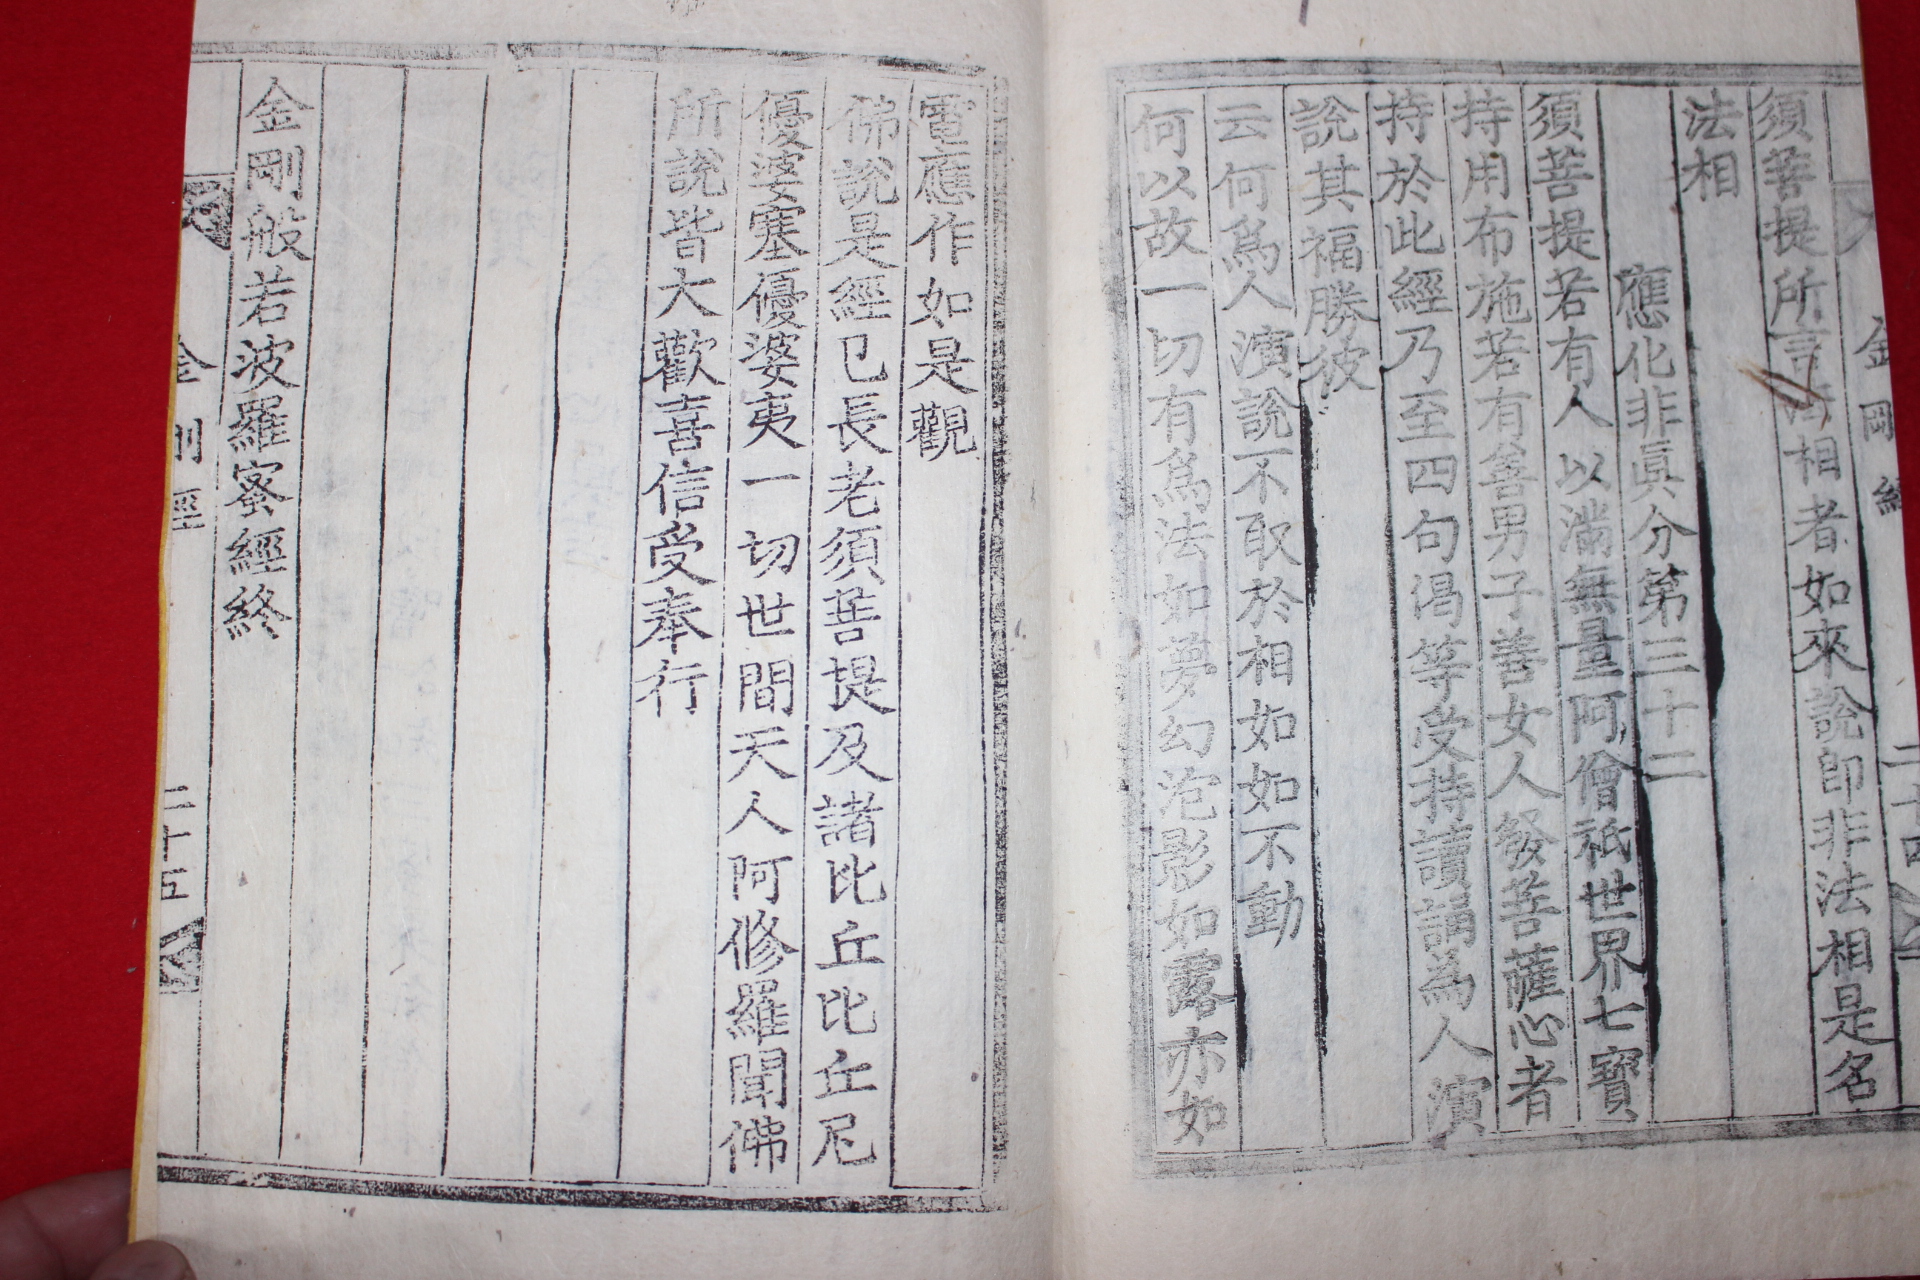 金剛經
二十四
須菩提所言法相者如來說卽非法相是名
法相
應化非眞分第三十二
須菩提若有人以滿無量阿僧祇世界七寶
持用布施若有善男子善女人發菩薩心者
持於此經乃至四句偈等受持讀誦爲人演
說其福勝彼
云何爲人演說不取於相如如不動
何以故一切有爲法如夢幻泡影如露亦如
電應作如是觀
佛說是經已長老須菩提及諸比丘比丘尼
優婆塞優婆夷一切世間天人阿修羅聞佛
所說皆大歡喜信受奉行
金剛般若波羅蜜經終
金剛經
二十五